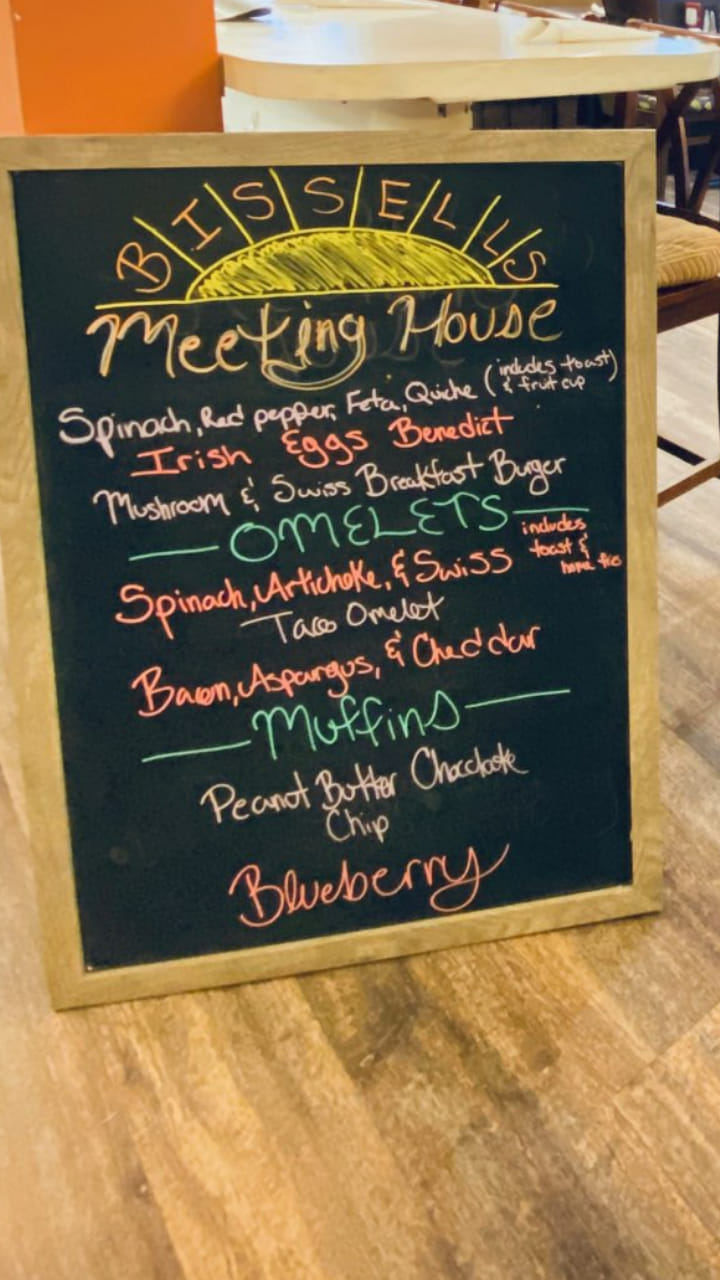 BISSELLS
Meeting House
Spinach, Red pepper, Feta, Quiche (includes toast & fruit cup)
Irish Eggs Benedict
Mushroom & Swiss Breakfast Burger
OMELETS
Spinach, Artichoke, & Swiss includes toast & home fries
Taco Omelet
Bacon, Aspargus, & Cheddar
Muffins
Peanut Butter Choclate
Chip
Blueberry